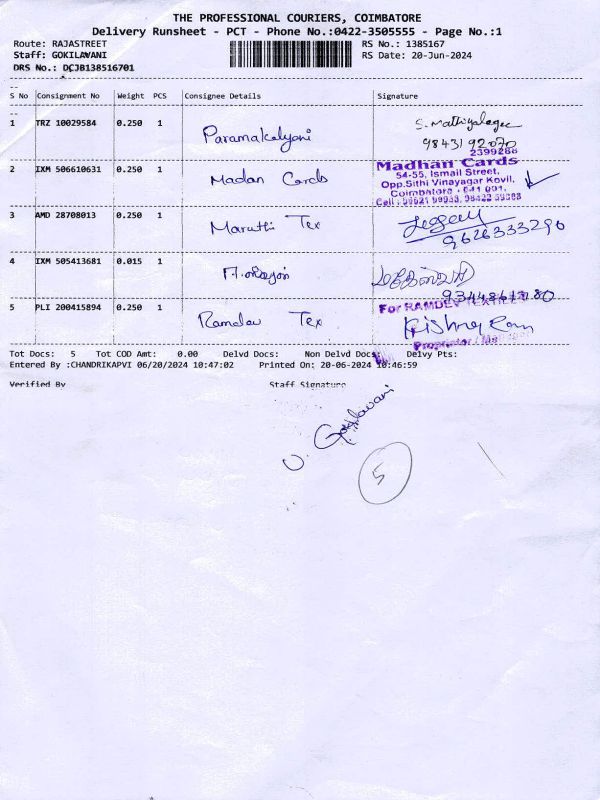 THE PROFESSIONAL COURIERS, COIMBATORE
Delivery Runsheet - PCT - Phone No.:0422-3505555 - Page No.:1
Route: RAJASTREET
RS No.: 1385167
Staff: GOKILAVANI
RS Date: 20-Jun-2024
DRS No.: DCJB138516701
S No Consignment No Weight PCS Consignee Details Signature
1 TRZ 10029584 0.250 1 Paramakalyani
9843192070
2399286
2 IXM 506610631 0.250 1 Madan Cards
Madhan Cards
54-55, Ismail Street,
Opp.Sithi Vinayagar Kovil,
Coimbatore - 641 001.
3 AMD 28708013 0.250 1 Maruthi Tex
9626333290
4 IXM 505413681 0.015 1
5 PLI 200415894 0.250 1 Ramdev Tex
For RAMDEV
Tot Docs: 5 Tot COD Amt: 0.00 Delvd Docs: Non Delvd Docs: Delvy Pts:
Entered By :CHANDRIKAPVI 06/20/2024 10:47:02 Printed On: 20-06-2024 10:46:59
Verified By Staff Signature
U. Gokilavani
5